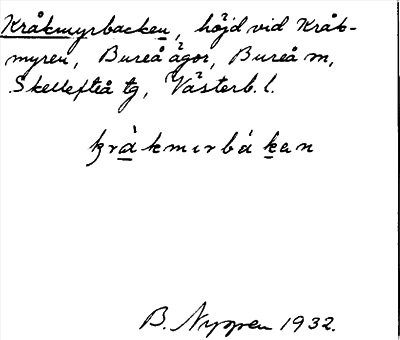 Kråkmyrbacken, höjd vid Kråk-
myren, Bureå ägor, Bureå m,
Skellefteå tg, Västerb. l.
kràkmırbákan
B. Nyggren 1932.